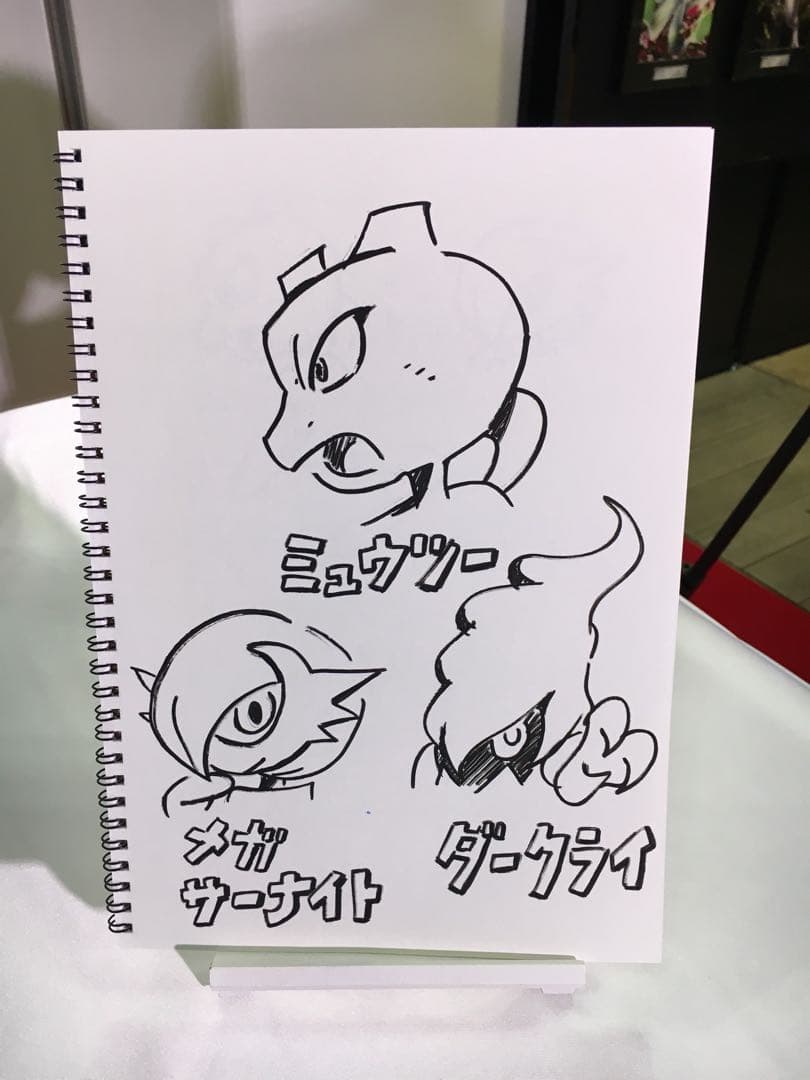 ミュウツー
メガ
サーナイト
ダークライ